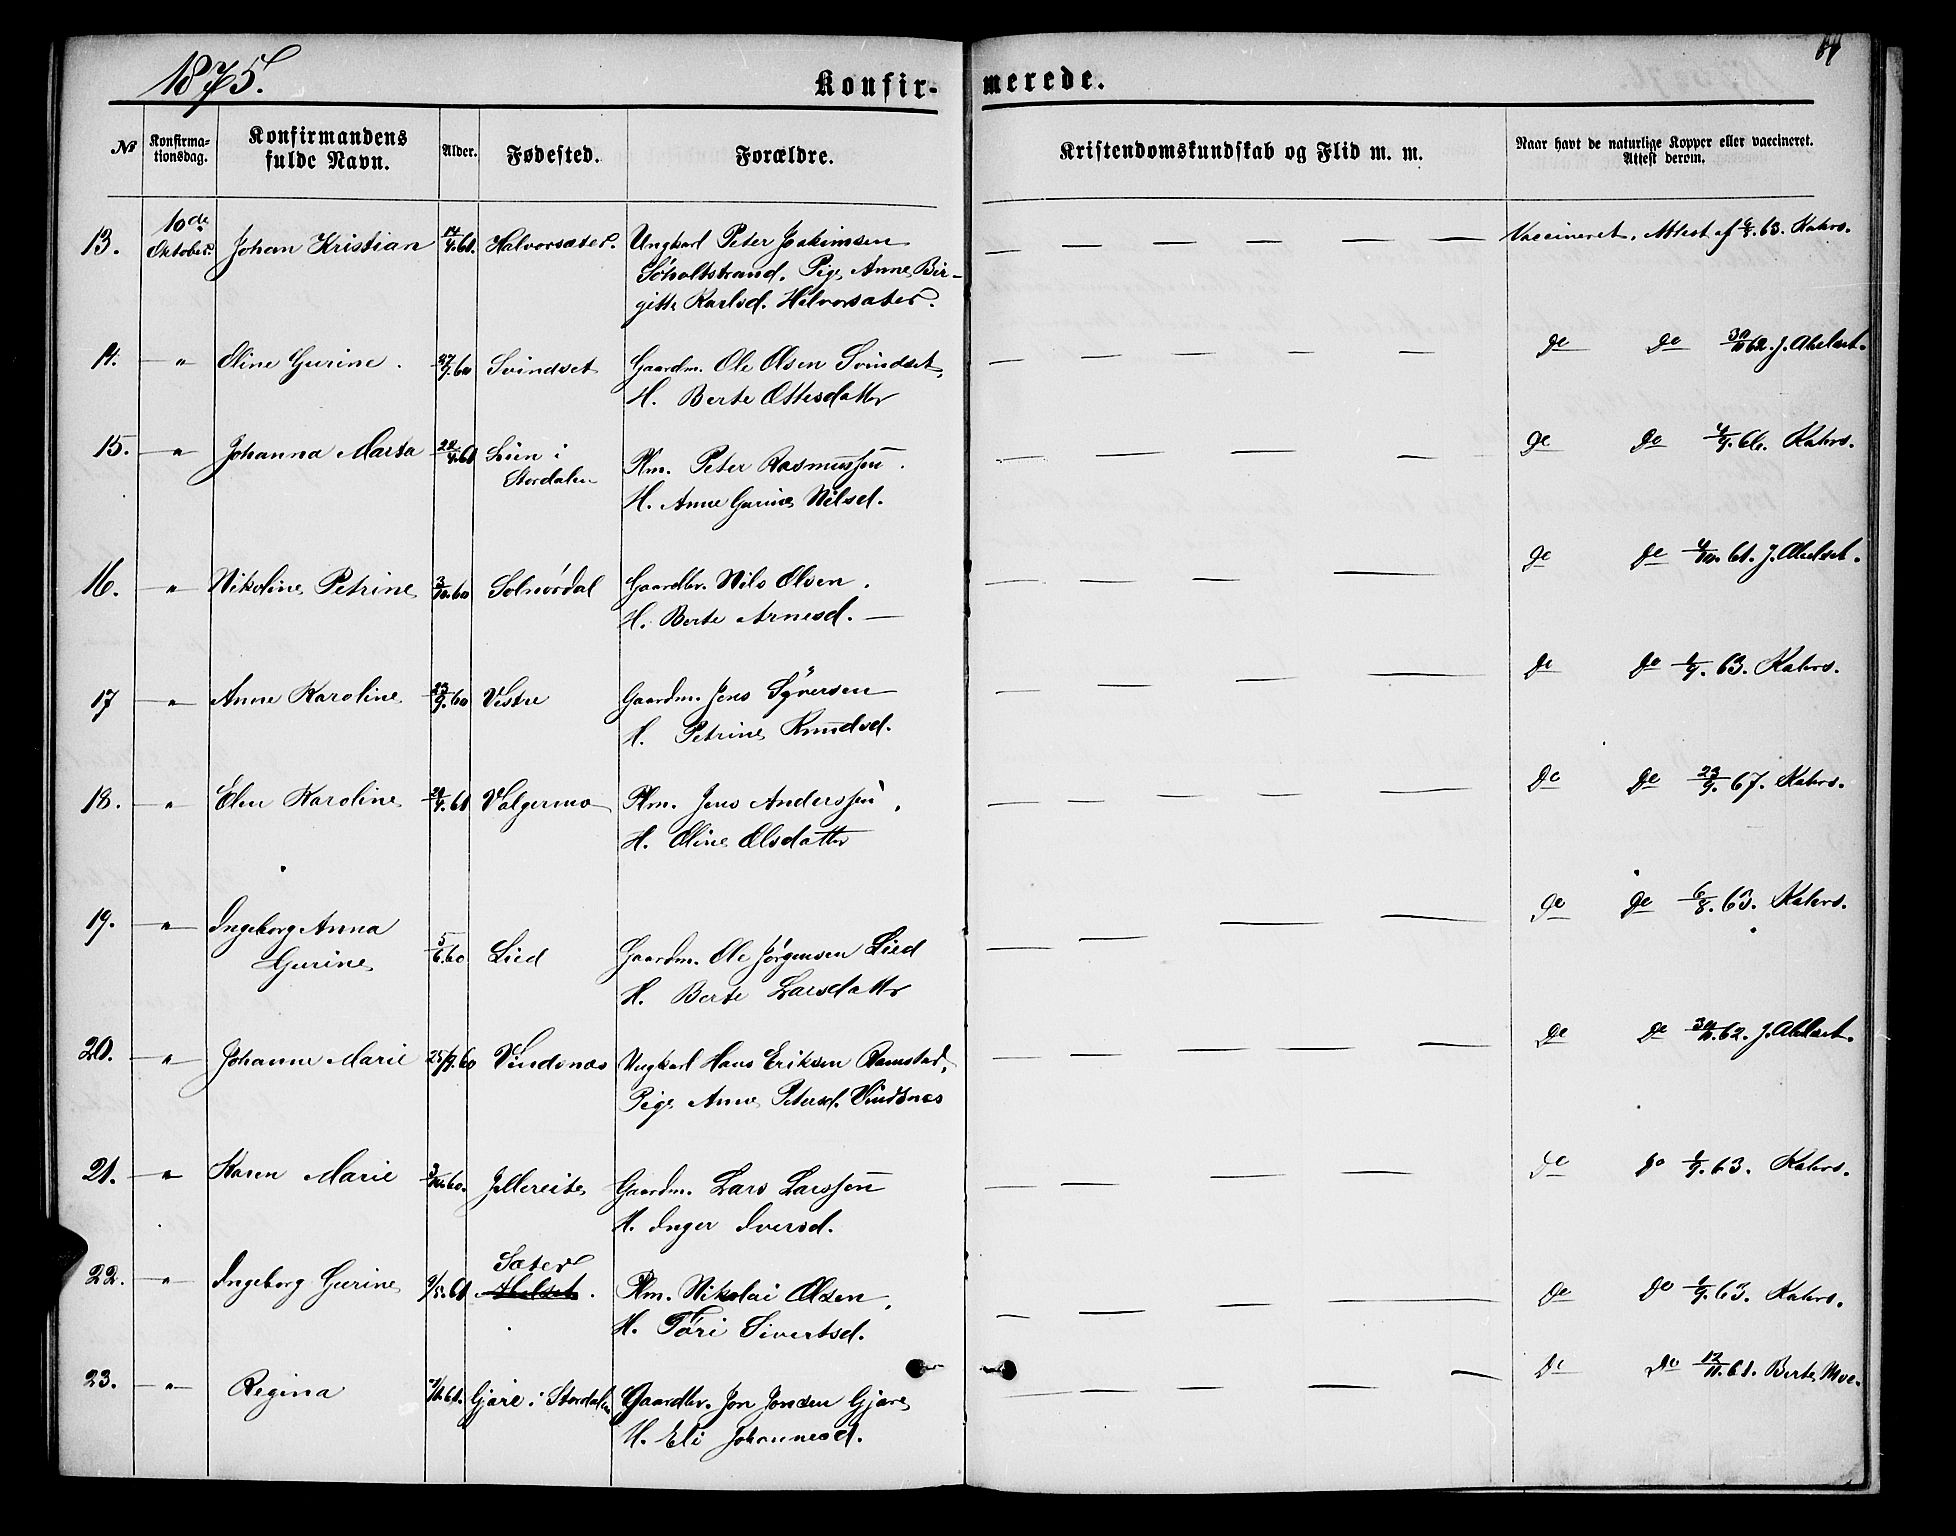 1875.
64
Konfirmerede.
№ Konfirmationsdag. Konfirmandens fulde Navn. Alder. Fødested. Forældre. Kristendomskundskab og Flid m. m. Naar havt de naturlige Kopper eller vaccineret. Attest derom.
13. 10de Oktober. Johan Kristian 14/4.61. Halvorsæter. Ungkarl Peter Joakimsen — — — — — — — Vaccineret. Attest af 6/8.63. Kahrs.
Søholtstrand. Pige Anne Bir-
gitte Karlsd. Halvorsæter.
14. — " Oline Gurine. 27/9.60 Svindset Gaardm. Ole Olsen Svindset, — — — — — — — do do 30/11 62. J. Abelset.
H. Berte Ottesdatter
15. — " Johanna Marta 22/4.61 Lien i Pm. Peter Rasmussen. — — — — — do do 4/9.66. Kahrs.
Stordalen H. Anne Gurine Nilsd.
16. — " Nikoline Petrine 3/10.60 Solnørdal Gaardbr. Nils Olsen. — — — — do do 4/10.61. J. Abelset.
H. Berte Arnesd. —
17 — " Anne Karoline 23/9.60 Vestre Gaardm. Jens Syversen — — — — do do 1/9.63. Kahrs.
H. Petrine Knudsd.
18. — " Elen Karoline 20/4.61 Valgermo Pm. Jens Anderssen, — — — — — do do 23/9.67. Kahrs.
H. Oline Olsdatter
19. — " Ingeborg Anna
Gurine 5/6.60 Lied Gaardm. Ole Jørgensen Lied — — — — do do 6/8.63. Kahrs.
H. Berte Larsdatter
20. — " Johanne Marie 25/9.60 Vindsnæs Ungkarl Hans Eriksen Ramstad, — — — — — do do 30/11.62. J. Abelset.
Pige Anne Petersd. Vindsnæs
21. — " Karen Marie 3/10.60. Jellereite Gaardm. Lars Larssen — — — — do do 1/9.63. Kahrs.
H. Inger Iversd.
22. — " Ingeborg Gurine 9/5.61 Sæter Abelset. Pm. Nikolai Olsen, — — — — do do 1/9.63. Kahrs.
H. Tøri Sivertsd.
23. — " Regina Gjære i Stordalen Gaardbr. Jon Jonsen Gjære — — — — — do do 12/11.61. Berte Moe.
H. Eli Johannesd.